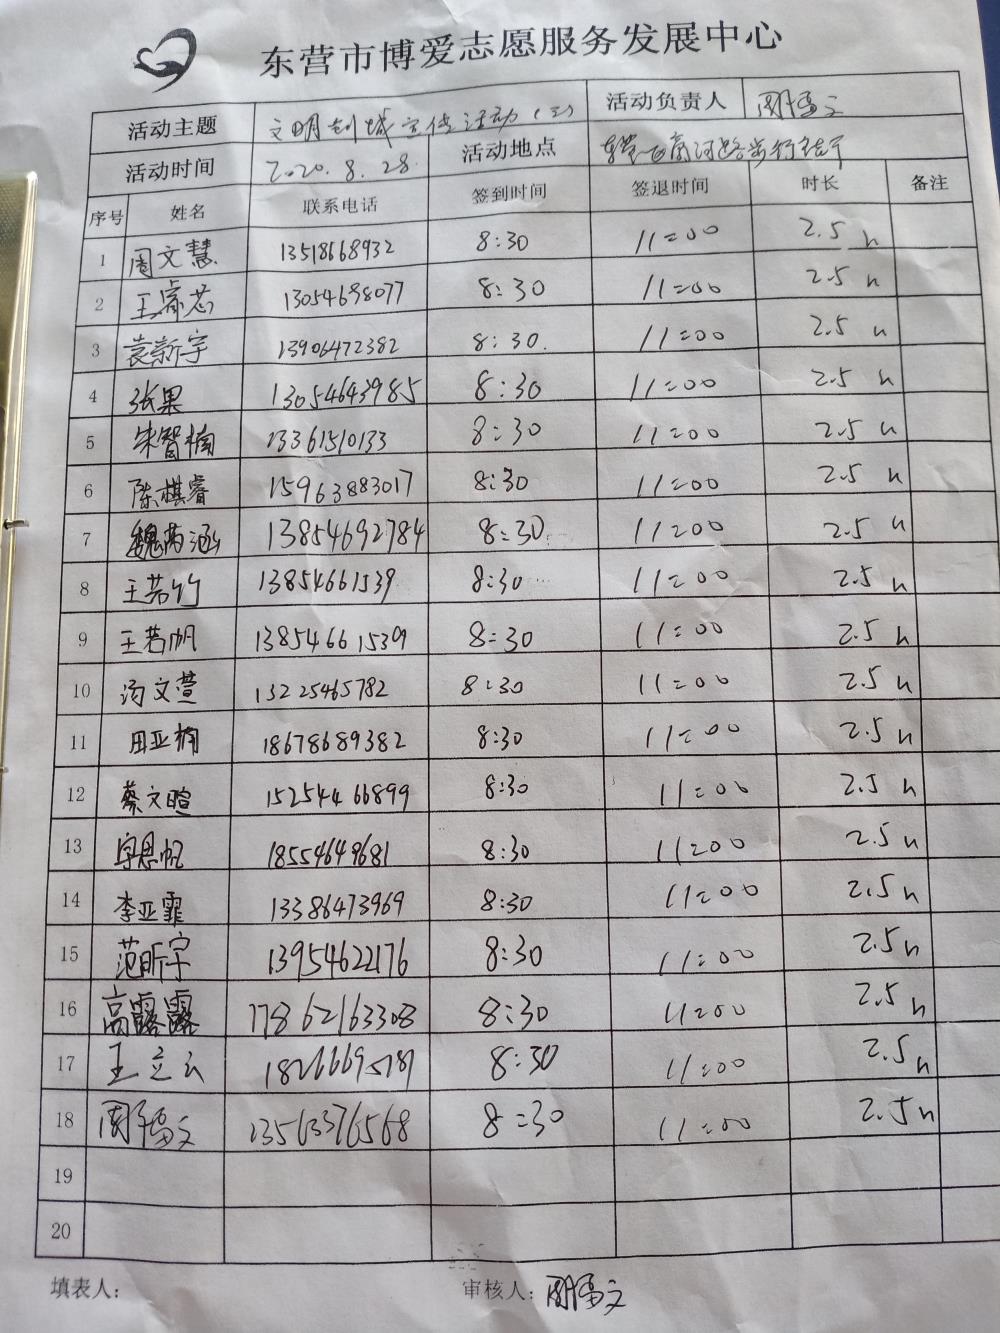 东营市博爱志愿服务发展中心
活动主题 文明创城宣传活动(三) 活动负责人
活动时间 2020.8.28 活动地点 西商河路步行街
序号 姓名 联系电话 签到时间 签退时间 时长 备注
1 周文慧 13518668932 8:30 11:00 2.5h
2 王睿芯 13054698077 8:30 11:00 2.5h
3 袁新宇 13906472382 8:30 11:00 2.5h
4 张果 13054643985 8:30 11:00 2.5h
5 朱智楠 13361510133 8:30 11:00 2.5h
6 陈棋睿 15963883017 8:30 11:00 2.5h
7 魏芮涵 13854692784 8:30 11:00 2.5h
8 王若竹 13854661539 8:30 11:00 2.5h
9 王若帆 13854661539 8:30 11:00 2.5h
10 汤文萱 13225465782 8:30 11:00 2.5h
11 田亚楠 18678689382 8:30 11:00 2.5h
12 蔡文暄 15254466899 8:30 11:00 2.5h
13 18554649681 8:30 11:00 2.5h
14 李亚霏 13386473969 8:30 11:00 2.5h
15 范昕宇 13954622176 8:30 11:00 2.5h
16 高露露 17862163308 8:30 11:00 2.5h
17 王立云 18266695781 8:30 11:00 2.5h
18 13563376568 8:30 11:00 2.5h
19
20
填表人: 审核人: